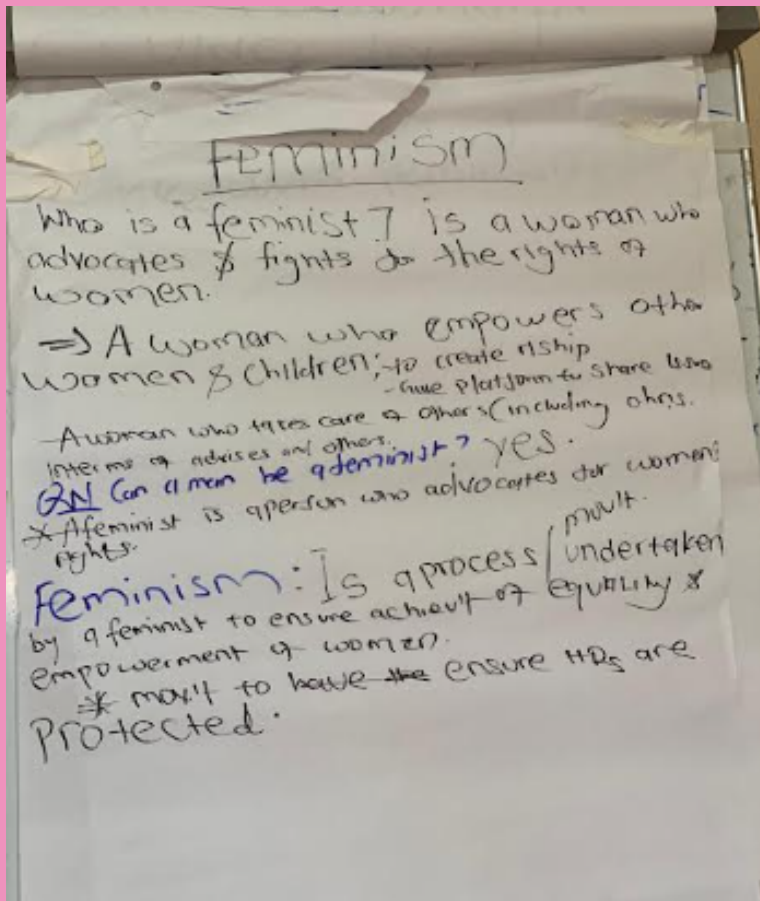 Feminism
Who is a feminist? is a woman who
advocates & fights for the rights of
women.
⇒ A woman who empowers other
women & children; - to create r/ship
- Give platform to share issues
- A woman who takes care of others (including ohrs.
interms of advises and others.
QN Can a man be a feminist? yes.
* A feminist is a person who advocates for women
rights.
mov't.
Feminism: Is a process / undertaken
by a feminist to ensure achiev't of equality &
empowerment of women.
* mov't to have the ensure HRs are
Protected.